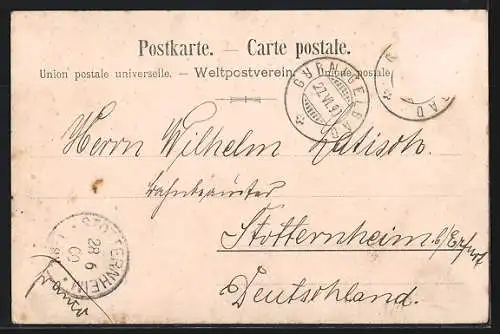 Postkarte. — Carte postale.
Union postale universelle. — Weltpostverein. — Unione postale
GURNIGELBAD
27.VI.
BAD
Herrn Wilhelm
Stotternheim b/Erfurt
Deutschland.
STOTTERNHEIM
28 6